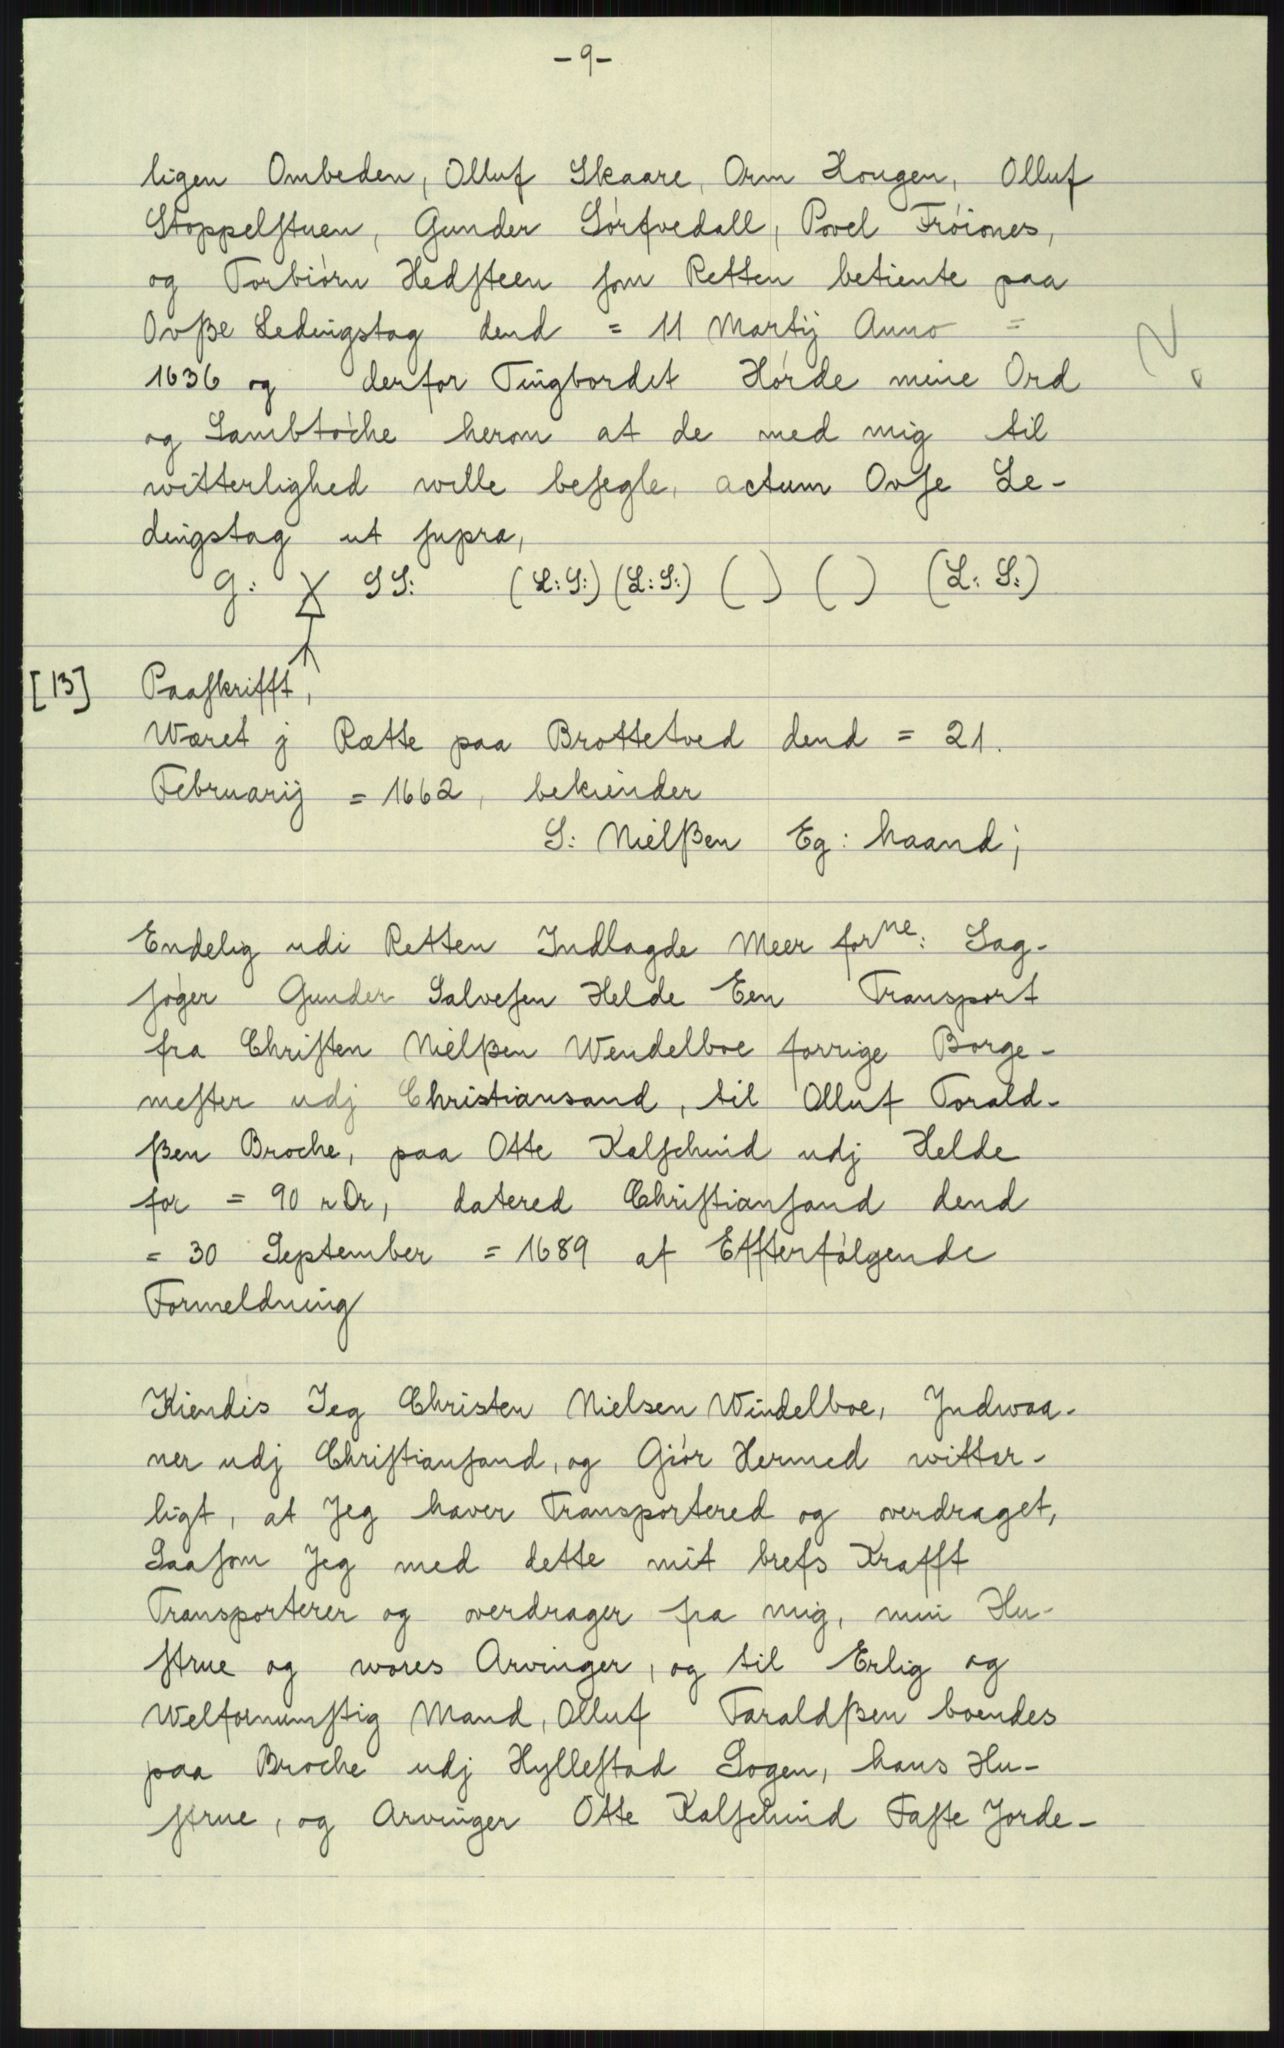 -9-
ligen Ombeden, Olluf Skaare, Orm Hougen, Olluf
Stoppelstuen, Gunder Sórfvedall, Povel Fróiones,
og Torbiórn Hedsteen som Retten betiente paa
Ovße Ledingstag dend = 11 Martij Anno =
1636 og derfor Tingbordet Hórde mine Ord
og Sambtóche herom at de med mig til
witterlighed wille besegle, actum Ovse Le-
dingstag ut supra,
G: SS: (L:S:) (L:S:) ( ) ( ) (L: S:)
[13] Paaskrifft,
Wæret j Rætte paa Brottetved dend = 21.
Februarij = 1662, bekiender
S: Nielßen Eg: haand;
Endelig udi Retten Indlagde Meer forne: Sag-
sóger Gunder Salvesen Helde Een Transport
fra Christen Nielßen Wendelboe forrige Borge-
mester udj Christiansand, til Olluf Torald-
ßen Broche, paa Otte Kalschind udj Helde
for = 90 rDr, datered Christiansand dend
= 30 September = 1689 af Effterfólgende
Formeldning
Kiendis Jeg Christen Nielsen Windelboe, Jndwaa-
ner udj Christiansand, og Giór Hermed witter-
ligt, at Jeg haver Transportered og overdraget,
Saasom Jeg med dette mit brefs Krafft
Transporterer og overdrager fra mig, min Hu-
strue og wores Arvinger, og til Erlig og
Welfornumstig Mand, Olluf Taraldßen boendes
paa Broche udj Hyllestad Sogen, hans Hu-
strue, og Arvinger Otte Kalschind Faste Jorde-